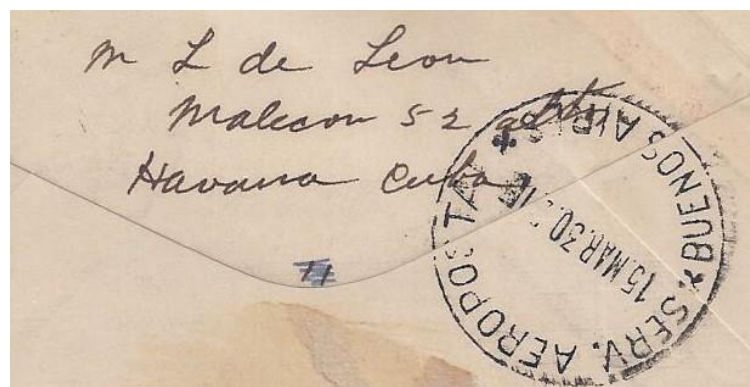 M L de Leon
Malecon 52 altos
Havana Cuba
SERV. AEROPOSTAL
BUENOS AIRES
15.MAR.30